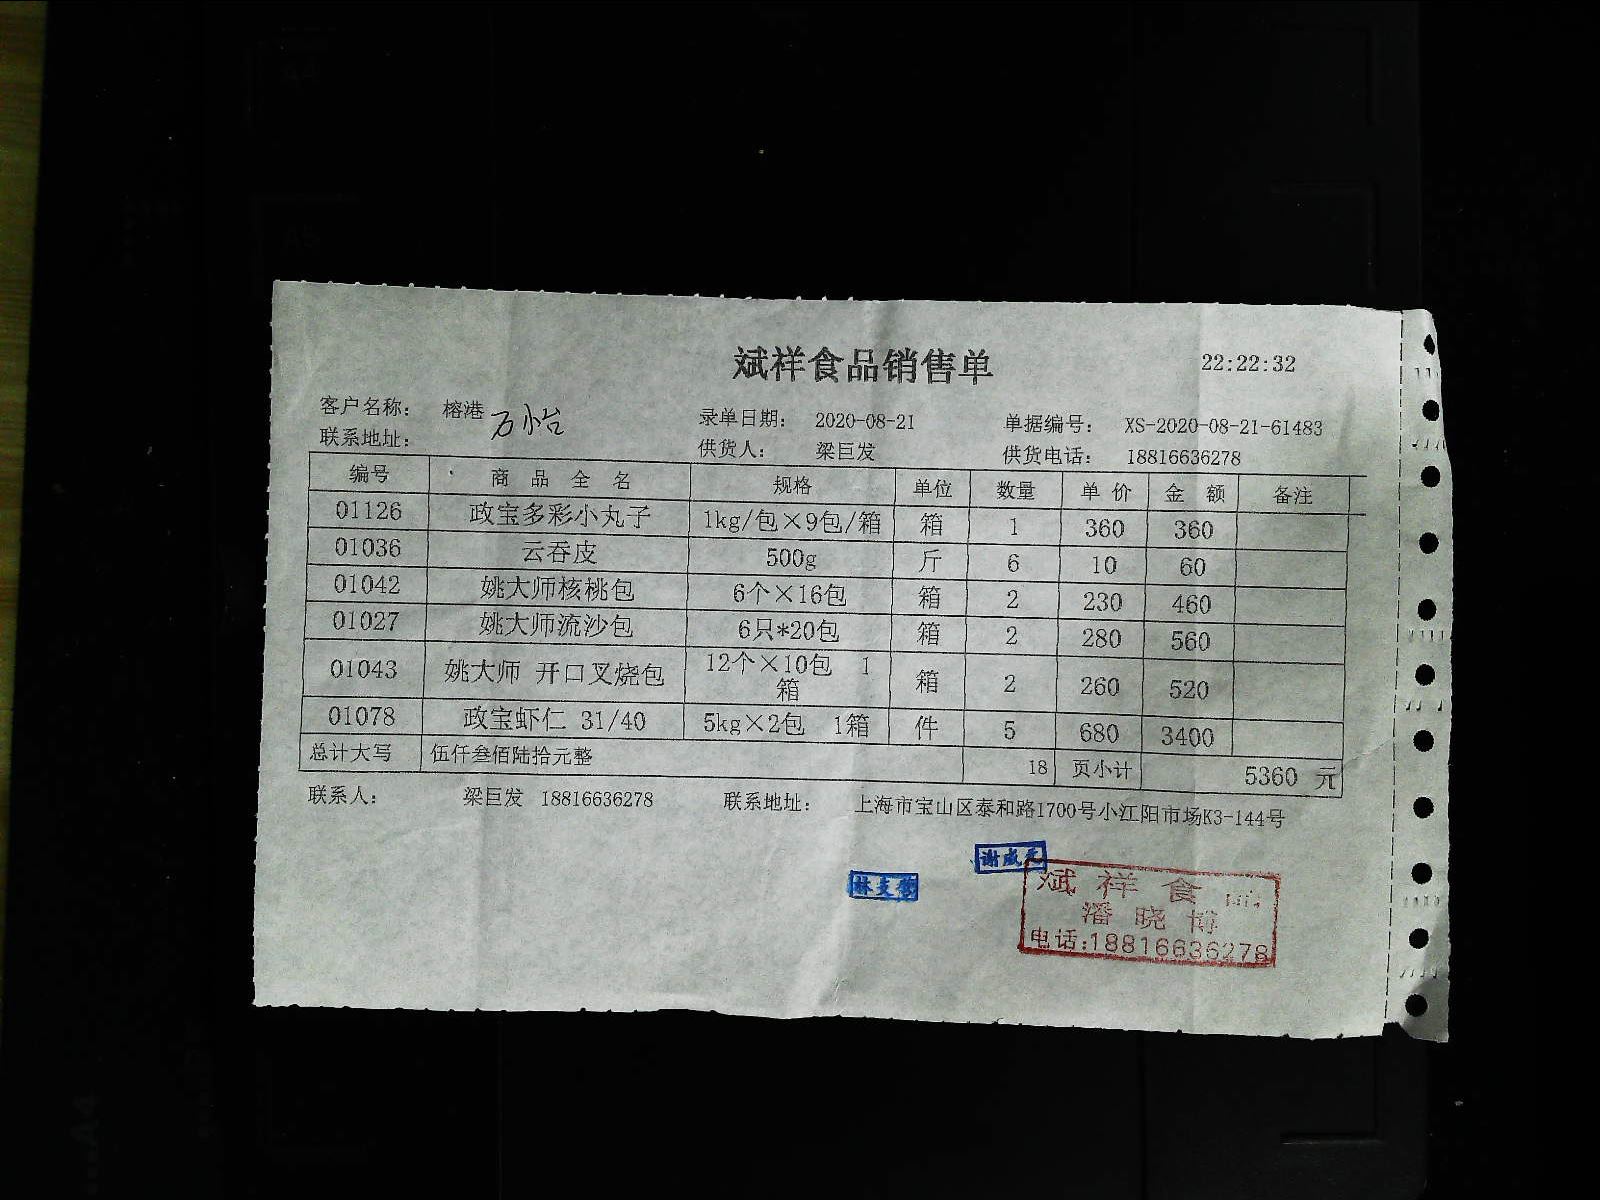 斌祥食品销售单 22:22:32
客户名称: 榕港 万怡 录单日期: 2020-08-21 单据编号: XS-2020-08-21-61483
联系地址: 供货人: 梁巨发 供货电话: 18816636278
编号 商 品 全 名 规格 单位 数量 单 价 金 额 备注
01126 政宝多彩小丸子 1kg/包×9包/箱 箱 1 360 360
01036 云吞皮 500g 斤 6 10 60
01042 姚大师核桃包 6个×16包 箱 2 230 460
01027 姚大师流沙包 6只*20包 箱 2 280 560
01043 姚大师 开口叉烧包 12个×10包 1箱 箱 2 260 520
01078 政宝虾仁 31/40 5kg×2包 1箱 件 5 680 3400
总计大写 伍仟叁佰陆拾元整 18 页小计 5360 元
联系人: 梁巨发 18816636278 联系地址: 上海市宝山区泰和路1700号小江阳市场K3-144号
斌祥食品
潘晓博
电话:18816636278